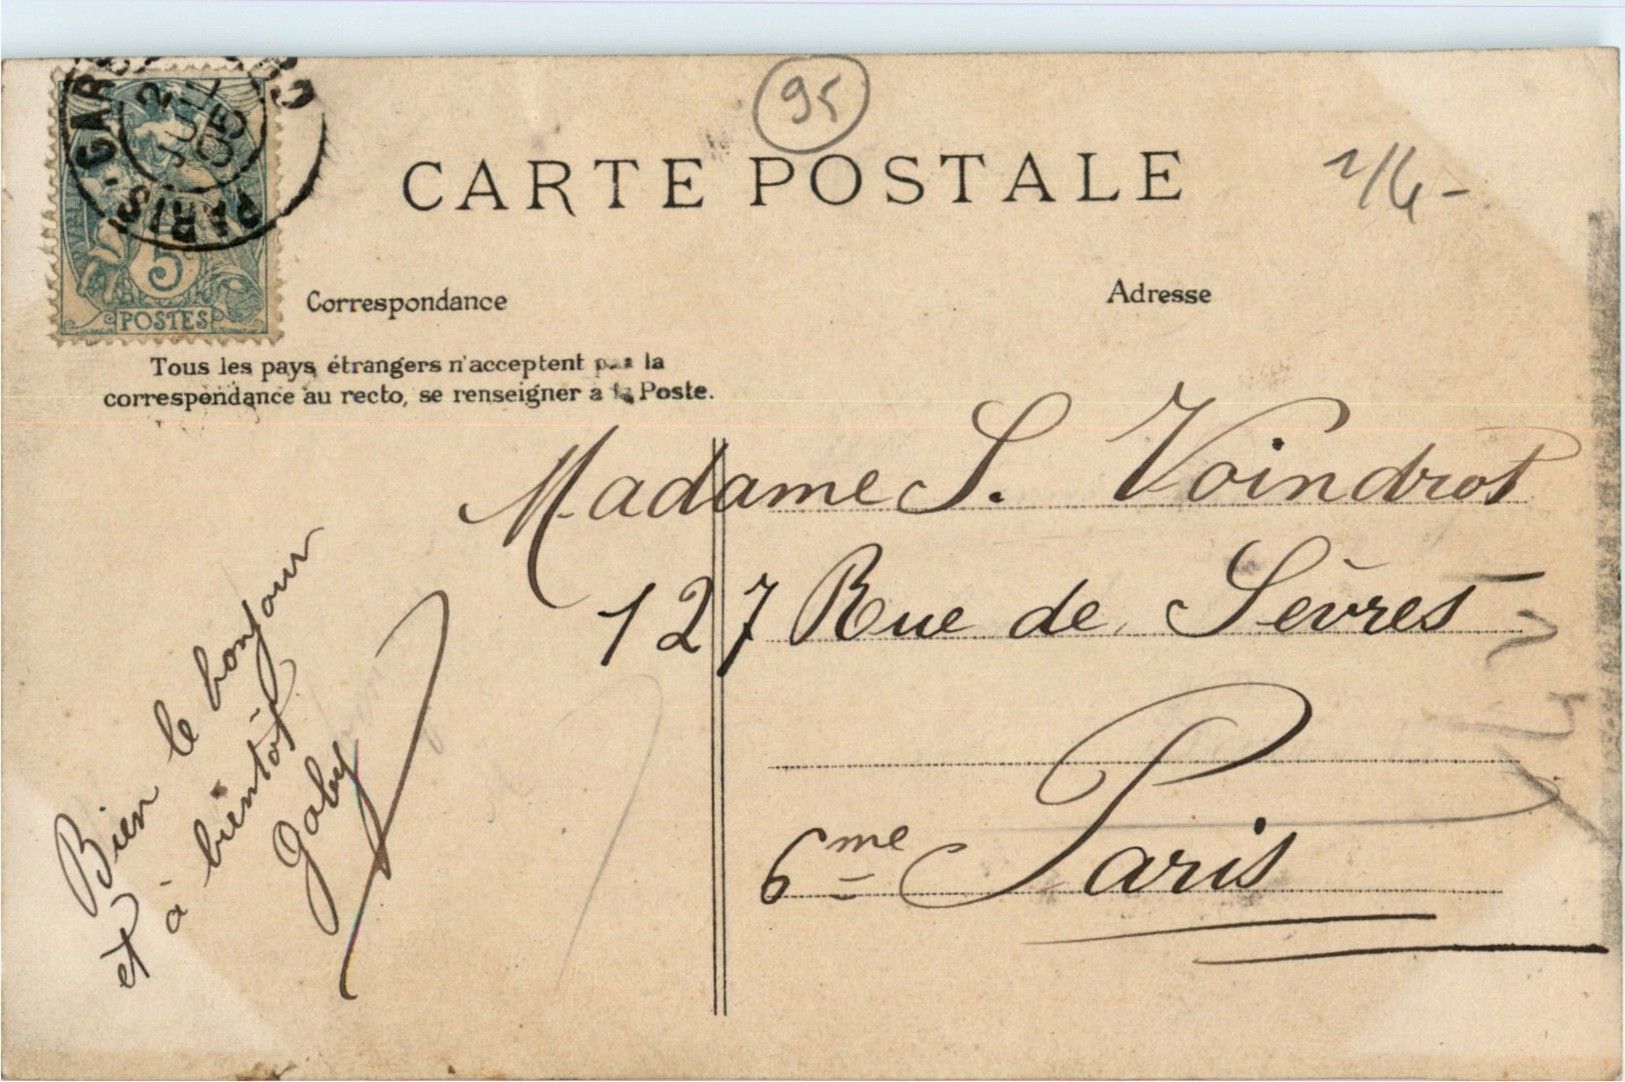 95
CARTE POSTALE
PARIS - GARE
2
JUIL
05
5
POSTES
Correspondance
Adresse
Tous les pays étrangers n'acceptent pas la
correspondance au recto, se renseigner à la Poste.
Madame S. Voindrot
127 Rue de Sèvres
6me Paris
Bien le bonjour
et à bientôt
Gaby